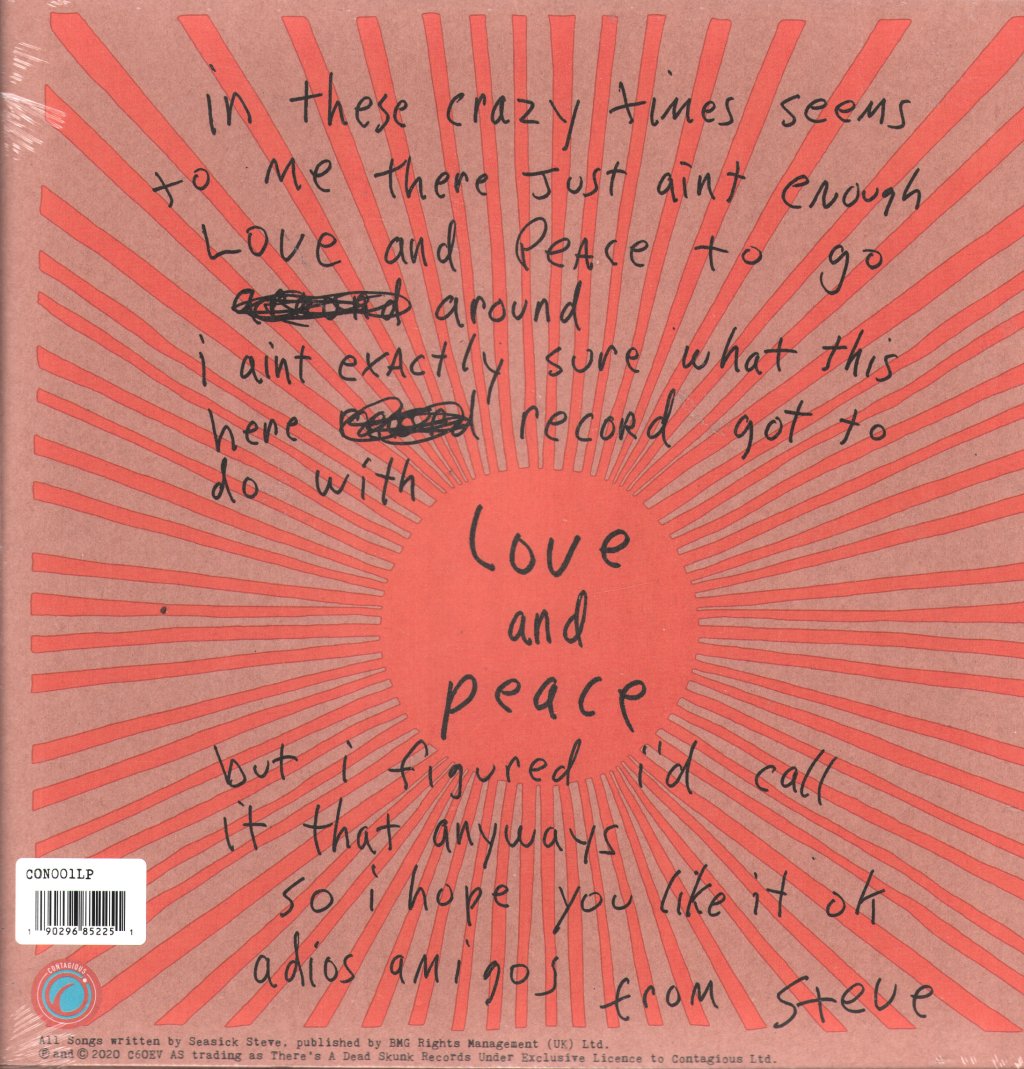 in these crazy times seems
to me there just aint enough
Love and Peace to go
around
i aint exactly sure what this
here record got to
do with
Love
and
peace
but i figured i'd call
it that anyways
so i hope you like it ok
adios amigos from Steve
CON001LP
1 90296 85225 1
CONTAGIOUS
All Songs written by Seasick Steve, published by BMG Rights Management (UK) Ltd.
℗ and © 2020 C60EV AS trading as There's A Dead Skunk Records Under Exclusive Licence to Contagious Ltd.